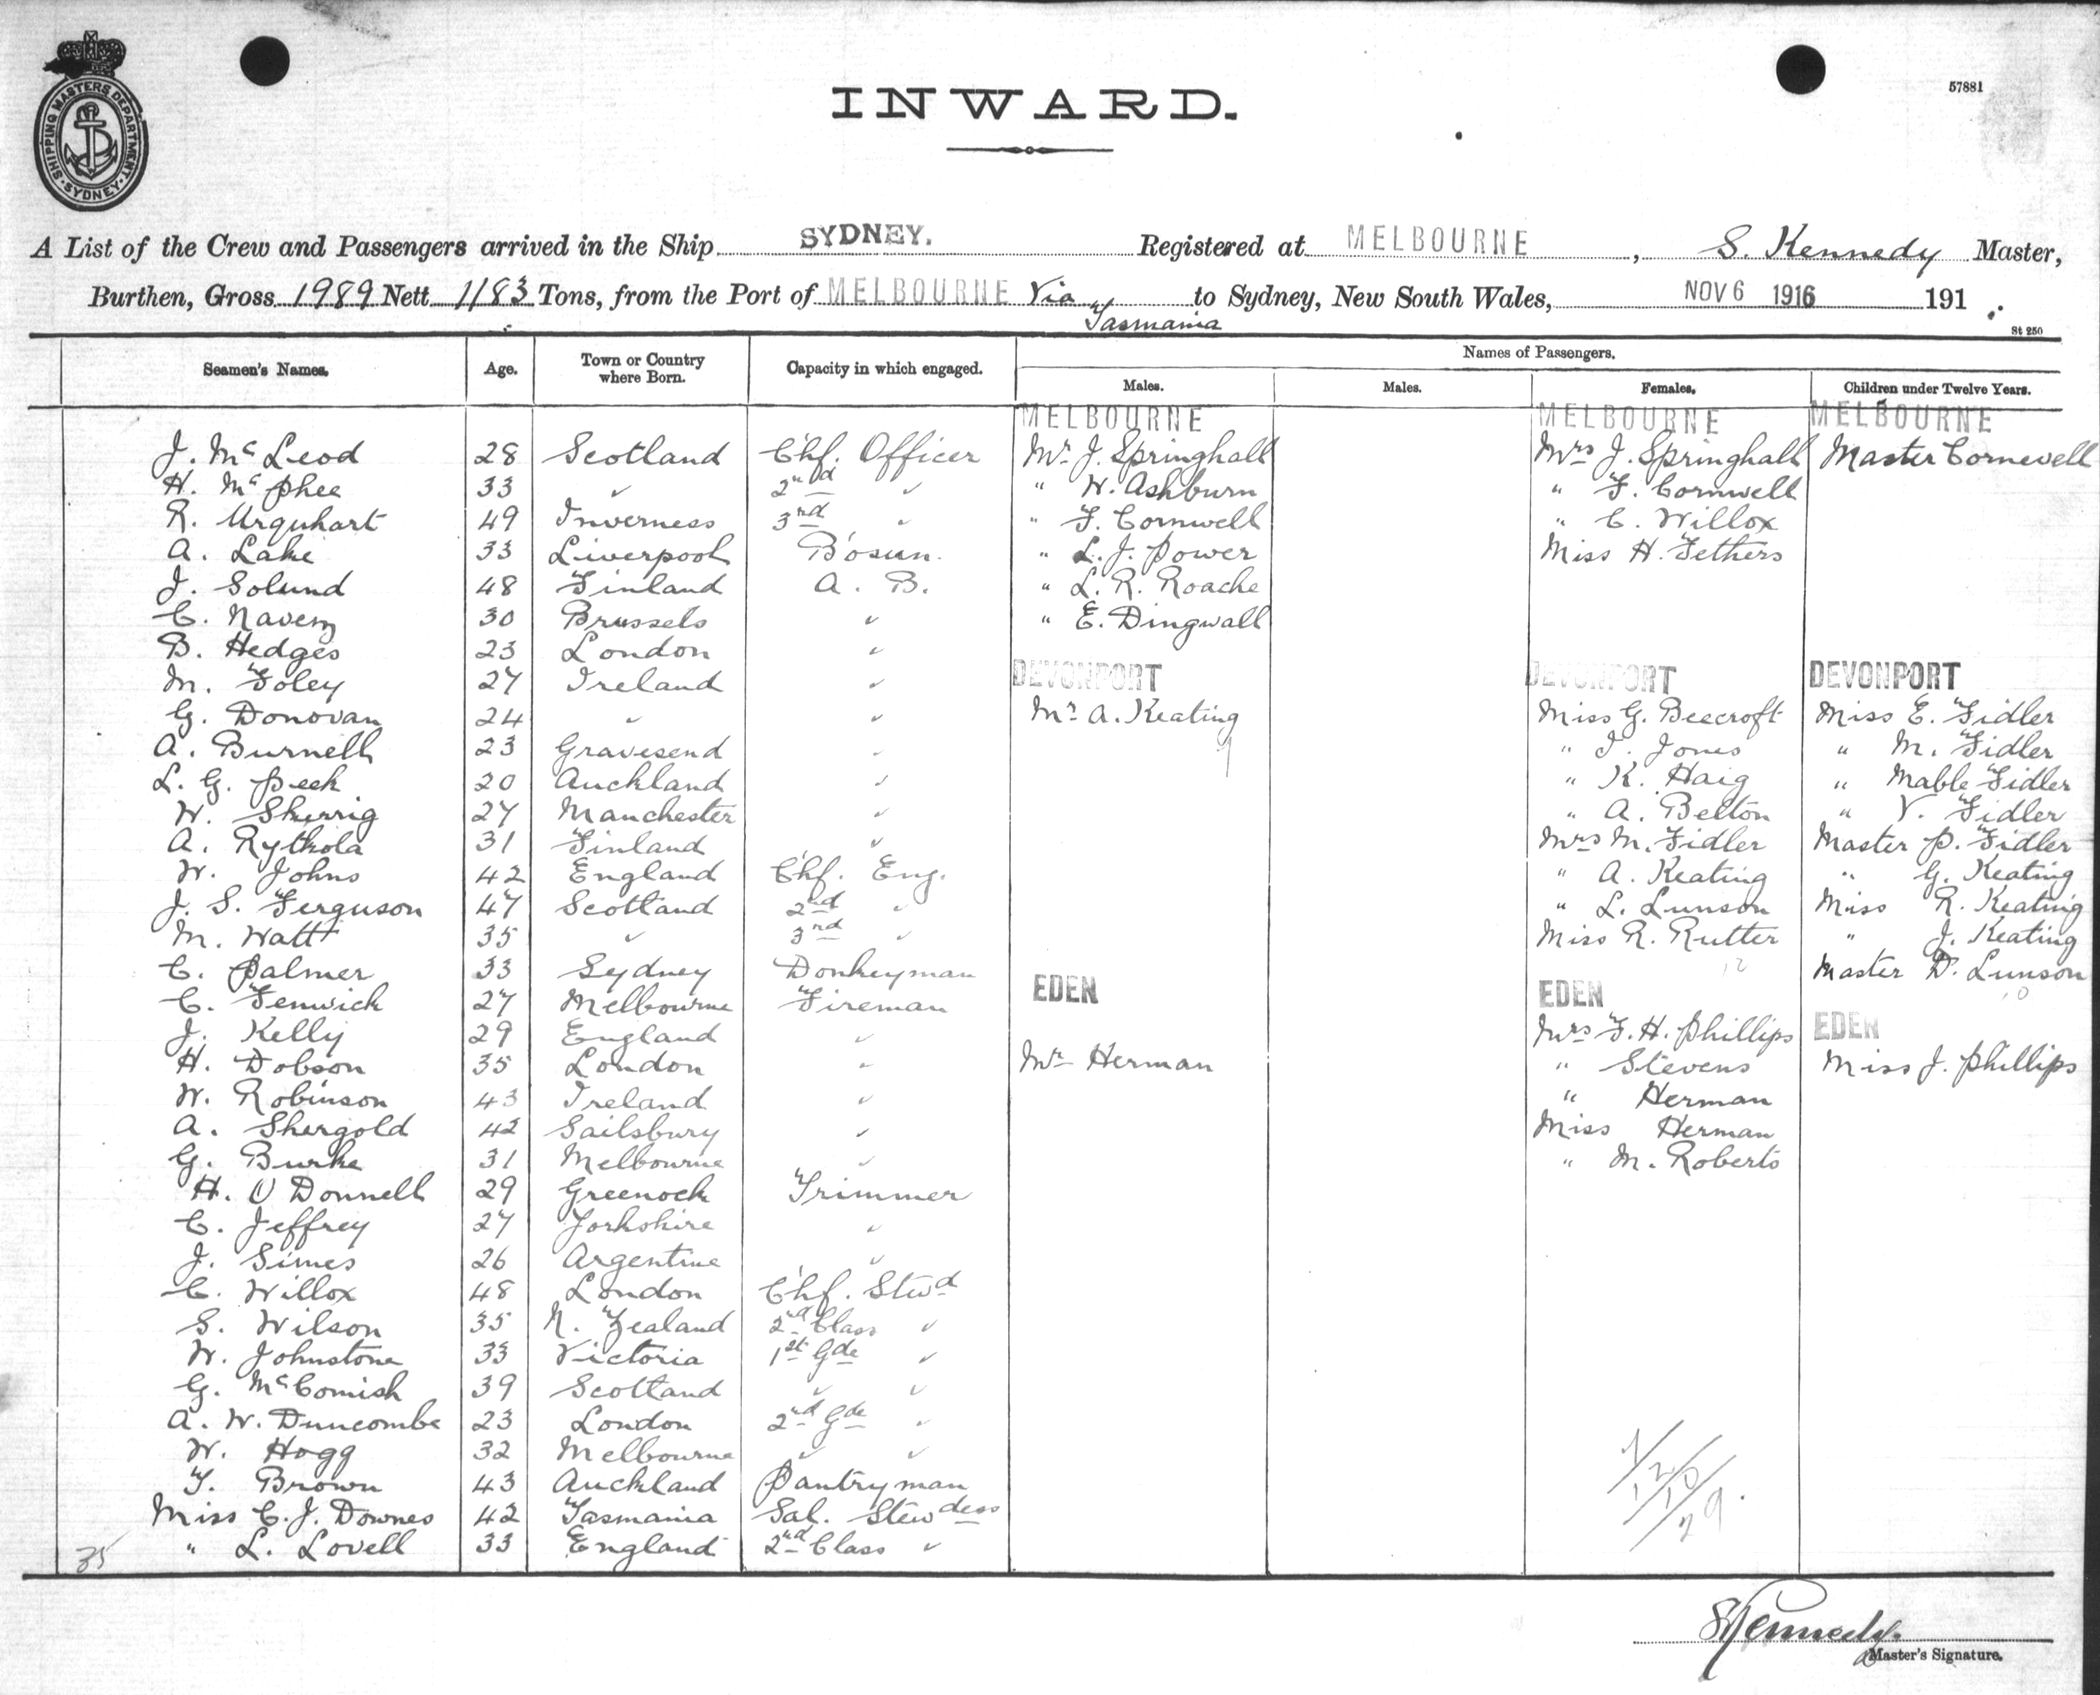 SHIPPING MASTERS DEPARTMENT. SYDNEY
57881
INWARD.
A List of the Crew and Passengers arrived in the Ship SYDNEY. Registered at MELBOURNE, S. Kennedy Master,
Burthen, Gross 1989 Nett 1183 Tons, from the Port of MELBOURNE Via Tasmania to Sydney, New South Wales, NOV 6 1916 191 .
St 250
Seamen's Names. Age. Town or Country where Born. Capacity in which engaged. Names of Passengers.
Males. Males. Females. Children under Twelve Years.
MELBOURNE MELBOURNE MELBOURNE
J. McLeod 28 Scotland Chf. Officer Mr J. Springhall Mrs J. Springhall Master Cornewell
H. McPhee 33 " 2nd " " W. Ashburn " F. Cornwell
R. Urquhart 49 Inverness 3rd " " F. Cornwell " C. Willox
A. Lake 33 Liverpool Bosun. " L. J. Power Miss H. Fethers
J. Solund 48 Finland A. B. " L. R. Roache
C. 30 Brussels " " E. Dingwall
B. Hedges 23 London "
M. Foley 27 Ireland " DEVONPORT DEVONPORT DEVONPORT
G. Donovan 24 " " Mr A. Keating Miss G. Beecroft Miss E. Fidler
A. Burnell 23 Gravesend " " I. Jones " M. Fidler
L. G. Peek 20 Auckland " " K. Haig " Mable Fidler
W. Skerrig 27 Manchester " " A. Belton " V. Fidler
A. Rytkola 31 Finland " Mrs M. Fidler Master P. Fidler
W. Johns 42 England Chf. Eng. " A. Keating " G. Keating
J. S. Ferguson 47 Scotland 2nd " " L. Lunson Miss R. Keating
M. Watt 35 " 3rd " Miss R. Rutter " J. Keating
C. Palmer 33 Sydney Donkeyman 12 Master D. Lunson
C. Fenwick 27 Melbourne Fireman EDEN EDEN 10
J. Kelly 29 England " Mrs F. H. Phillips EDEN
H. Dobson 35 London " Mr Herman " Stevens Miss J. Phillips
W. Robinson 43 Ireland " " Herman
A. Shergold 42 Sailsbury " Miss Herman
G. Burke 31 Melbourne " " M. Roberts
H. O Donnell 29 Greenock Trimmer
C. Jeffrey 27 Yorkshire "
J. Simes 26 Argentine "
C. Willox 48 London Chf. Stewd
S. Wilson 35 N. Zealand 2nd Class "
W. Johnstone 33 Victoria 1st Gde "
G. McComish 39 Scotland " "
A. W. Duncombe 23 London 2nd Gde "
W. Hogg 32 Melbourne " "
T. Brown 43 Auckland Pantryman
Miss C. J. Downes 42 Tasmania Sal. Stewdess
" L. Lovell 33 England 2nd Class "
35
7/12/10/29.
S Kennedy.
Master's Signature.